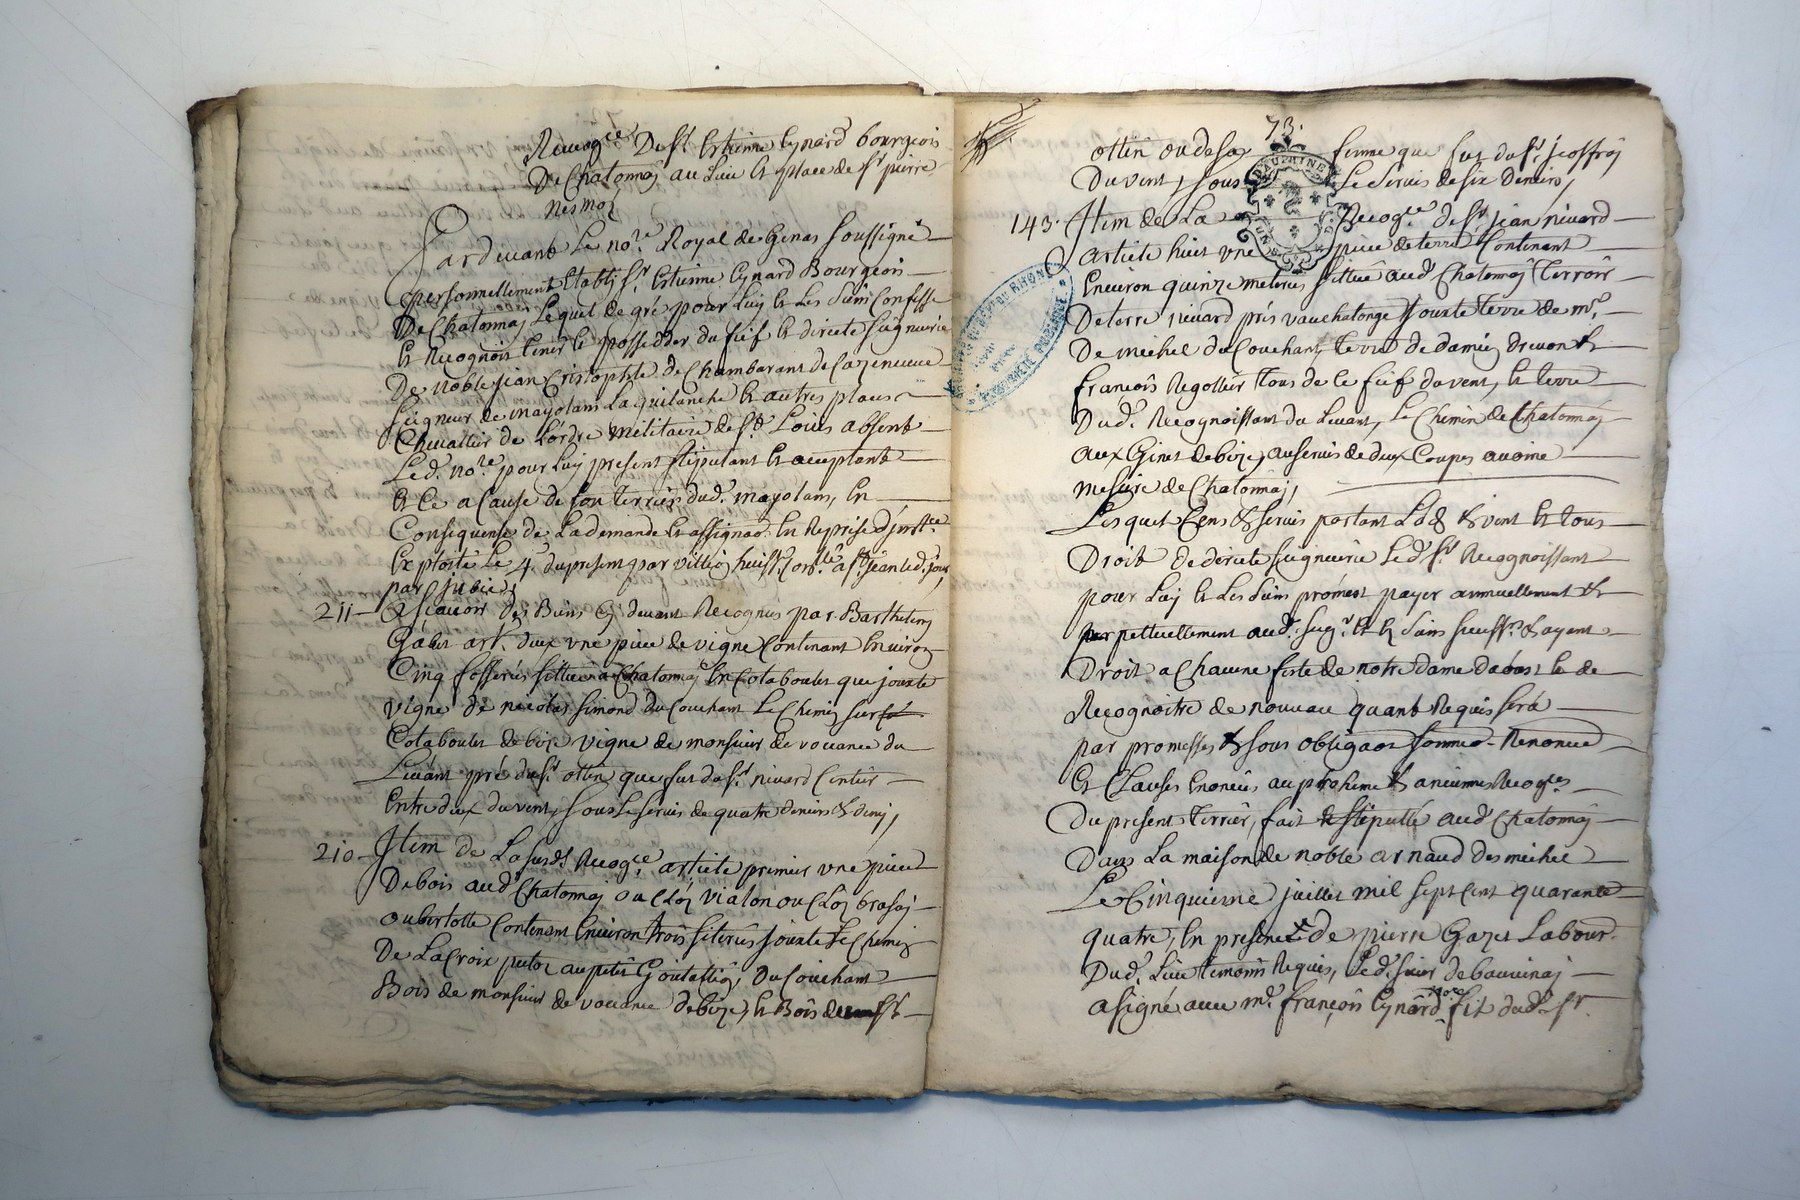 Recog.ce Du Sr Estienne Eynard bourgeois
De Chatonnaj au Lieu et place de Sr pierre
nesmoz
Pardevant Le no.re Royal de Genas Soussigné
personnellement Etably Sr. Estienne Eynard Bourgeois
De Chatonnaj Lequel de gré pour Luy et Les Siens Confesse
et Recognoit tenir et posseder du fief et directe Seigneurie
De noble jean Cristophle de Chambarant de Cazeneuve
Seigneur de mayolans La quilanche et autres places
Chevallier de L'ordre militaire de St. Louis absent
Le d. no.re pour Luy present stipulant et acceptant
et Ce a Cause de son terrier dud. mayolans, En
Consequense de La demande et assignaon. En Reprise d'inst.ce
Exploité Le 4. du present par huiss.r a St jean led. jour
par
211 - Asçavoir des Biens Cy devant Recognus par Barthelemy
Gabet art. deux une piece de vigne Contenant Environ
Cinq fosserées Sittuée a Chatonnaj En Cotaboulet que jouxte
vigne de nicolas Simond du Couchant Le Chemin Sur
Cotaboulet de bize vigne de monsieur de vouance du
Levant pré du Sr. ottin que fut du Sr. nivard Centier
Entre deux du vent, Sous Le Servis de quatre deniers & demy,
210 - Item de La susd.e Recog.ce article premier une piece
De bois aud. Chatonnaj ou Cloz vialon ou Cloz brasaj
ou bertotte Contenant Environ trois siterées jouxte Le Chemin
De La Croix au petit Goutallion, Du Couchant
Bois de monsieur de vouance de bize, et Bois de Sr
73.
ottin ou de sa femme que fut du Sr. jeoffroy
Du vent, Sous Le Servis de six Deniers,
DAUPHINE
143. Item de La Recog.ce de Sr. jean nivard
Article huit une piece de terre, Contenant
Environ quinze meterées Sittuée aud. Chatonnaj terroir
De terre nivard près vauchatonge jouxte terre de mr.
De michel du Couchant, terre de Damien drevon &
françois Regottier tous de Ce fief du vent, et terre
Dud. Recognoissant du Levant, Le Chemin de Chatonnaj
aux Ginet de bize, au Servis de deux Coupes avoine
mesure de Chatonnaj,
Lesquels Cens & servis portant Lods & vent et tous
Droit de directe Seigneurie Led. Sr. Recognoissant
pour Luy et Les Siens promest payer annuellement &
perpettuellement aud. Seigr. et es Siens Success.rs & ayant
Droit a Chacune feste de notre dame daôust et de
Recognoitre de nouveau quant Requis Sera
par promesses & Sous obligaon Renonce
et Clauses Enoncés au proheme & anciennes Recog.ces
Du present Terrier, fait & stipulle aud. Chatonnaj
Dans La maison de noble arnaud des michel
Le Cinquieme juillet mil sept Cent quarante
quatre, En presence de pierre Gazet Labour.
Dud. Lieu temoins Requis, Le d. Sieur de bauvinaj
a signé avec me. françois Eynard no.re fit dud. Sr.